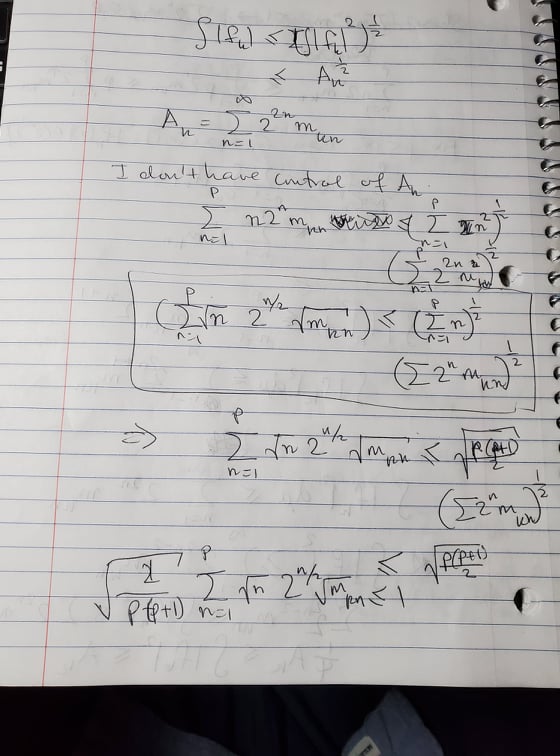 ∫|f_k| ≤ (∫|f_k|²)^{1/2}
≤ A_k^{1/2}
A_k = ∑_{n=1}^{∞} 2^{2n} m_{kn}
I don't have control of A_k.
∑_{n=1}^{p} n 2^n m_{kn} ≤ (∑_{n=1}^{p} n²)^{1/2}
(∑_{n=1}^{p} 2^{2n} m_{kn}²)^{1/2}
(∑_{n=1}^{p} √n 2^{n/2} √m_{kn}) ≤ (∑_{n=1}^{p} n)^{1/2}
(∑ 2^n m_{kn})^{1/2}
⇒ ∑_{n=1}^{p} √n 2^{n/2} √m_{kn} ≤ √(p(p+1)/2)
(∑ 2^n m_{kn})^{1/2}
≤ √(p(p+1)/2)
√(2/(p(p+1))) ∑_{n=1}^{p} √n 2^{n/2} √m_{kn} ≤ 1